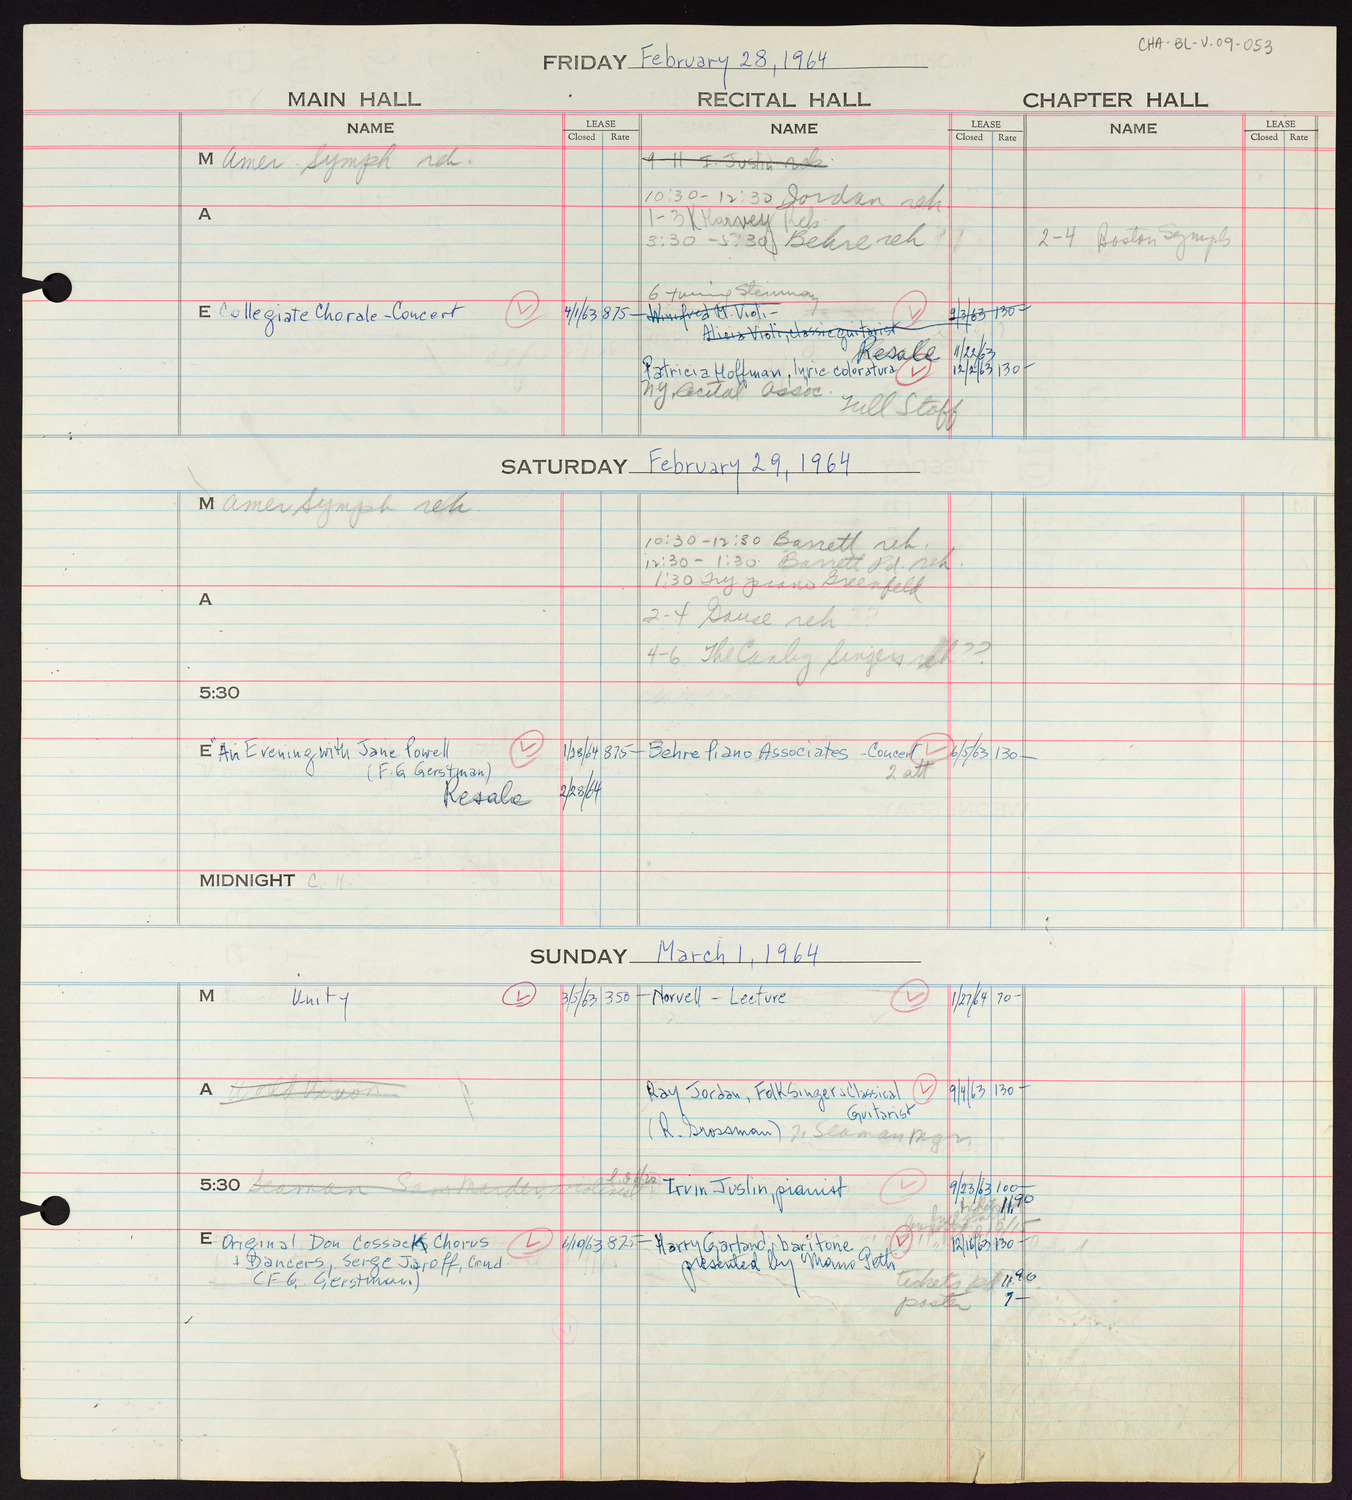 CHA-BL-V-09-053
FRIDAY February 28, 1964
MAIN HALL RECITAL HALL CHAPTER HALL
NAME LEASE Closed Rate NAME LEASE Closed Rate NAME LEASE Closed Rate
M Amer. Symph reh. 9-11 I. Justin reh
10:30-12:30 Jordan reh
A 1-3 Harvey reh
3:30-5:30 Behre reh ?? 2-4 Boston Symph
6 tuning Steinway
E Collegiate Chorale-Concert 4/1/63 875- Winifred H. Violi- 9/3/63 130-
Alicia Violi, classic guitarist
Resale 11/22/63
Patricia Hoffman, lyric coloratura 12/2/63 130-
NY Recital Assoc.
Full Staff
SATURDAY February 29, 1964
M Amer Symph reh
10:30-12:30 Barrett reh.
12:30-1:30 Barrett Pd. reh.
1:30 Try piano Greenfeld
A
2-4 Gause reh ??
4-6 The Canby Singers reh ??
5:30
E "An Evening with Jane Powell 1/28/64 875- Behre Piano Associates -Concert 6/5/63 130-
(F.G. Gerstman) 2 att
Resale 2/28/64
MIDNIGHT C. H.
SUNDAY March 1, 1964
M Unity 3/5/63 350- Norvell - Lecture 1/27/64 70-
A Ray Jordan, Folk Singer & Classical 9/4/63 130-
Guitarist
(R. Grossman) Seaman mgr.
5:30 Seaman Irvin Justin, pianist 9/23/63 100-
11.90
E Original Don Cossack Chorus 6/10/63 875- Harry Garland, baritone 12/16/63 130-
+ Dancers, Serge Jaroff, Cond. presented by Momo Peth
(F.G. Gerstman) tickets pd 11.90
poster 7-